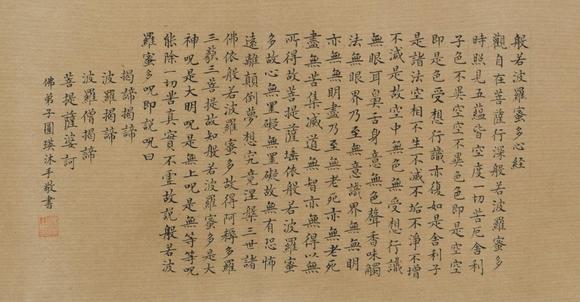 般若波羅蜜多心經
觀自在菩薩行深般若波羅蜜多
時照見五蘊皆空度一切苦厄舍利
子色不異空空不異色色即是空空
即是色受想行識亦復如是舍利子
是諸法空相不生不滅不垢不淨不增
不減是故空中無色無受想行識
無眼耳鼻舌身意無色聲香味觸
法無眼界乃至無意識界無無明
亦無無明盡乃至無老死亦無老死
盡無苦集滅道無智亦無得以無
所得故菩提薩埵依般若波羅蜜
多故心無罣礙無罣礙故無有恐怖
遠離顛倒夢想究竟涅槃三世諸
佛依般若波羅蜜多故得阿耨多羅
三藐三菩提故知般若波羅蜜多是大
神呪是大明呪是無上呪是無等等呪
能除一切苦真實不虛故說般若波
羅蜜多呪即說呪曰
揭諦揭諦
波羅揭諦
波羅僧揭諦
菩提薩婆訶
佛弟子圓瑛沐手敬書